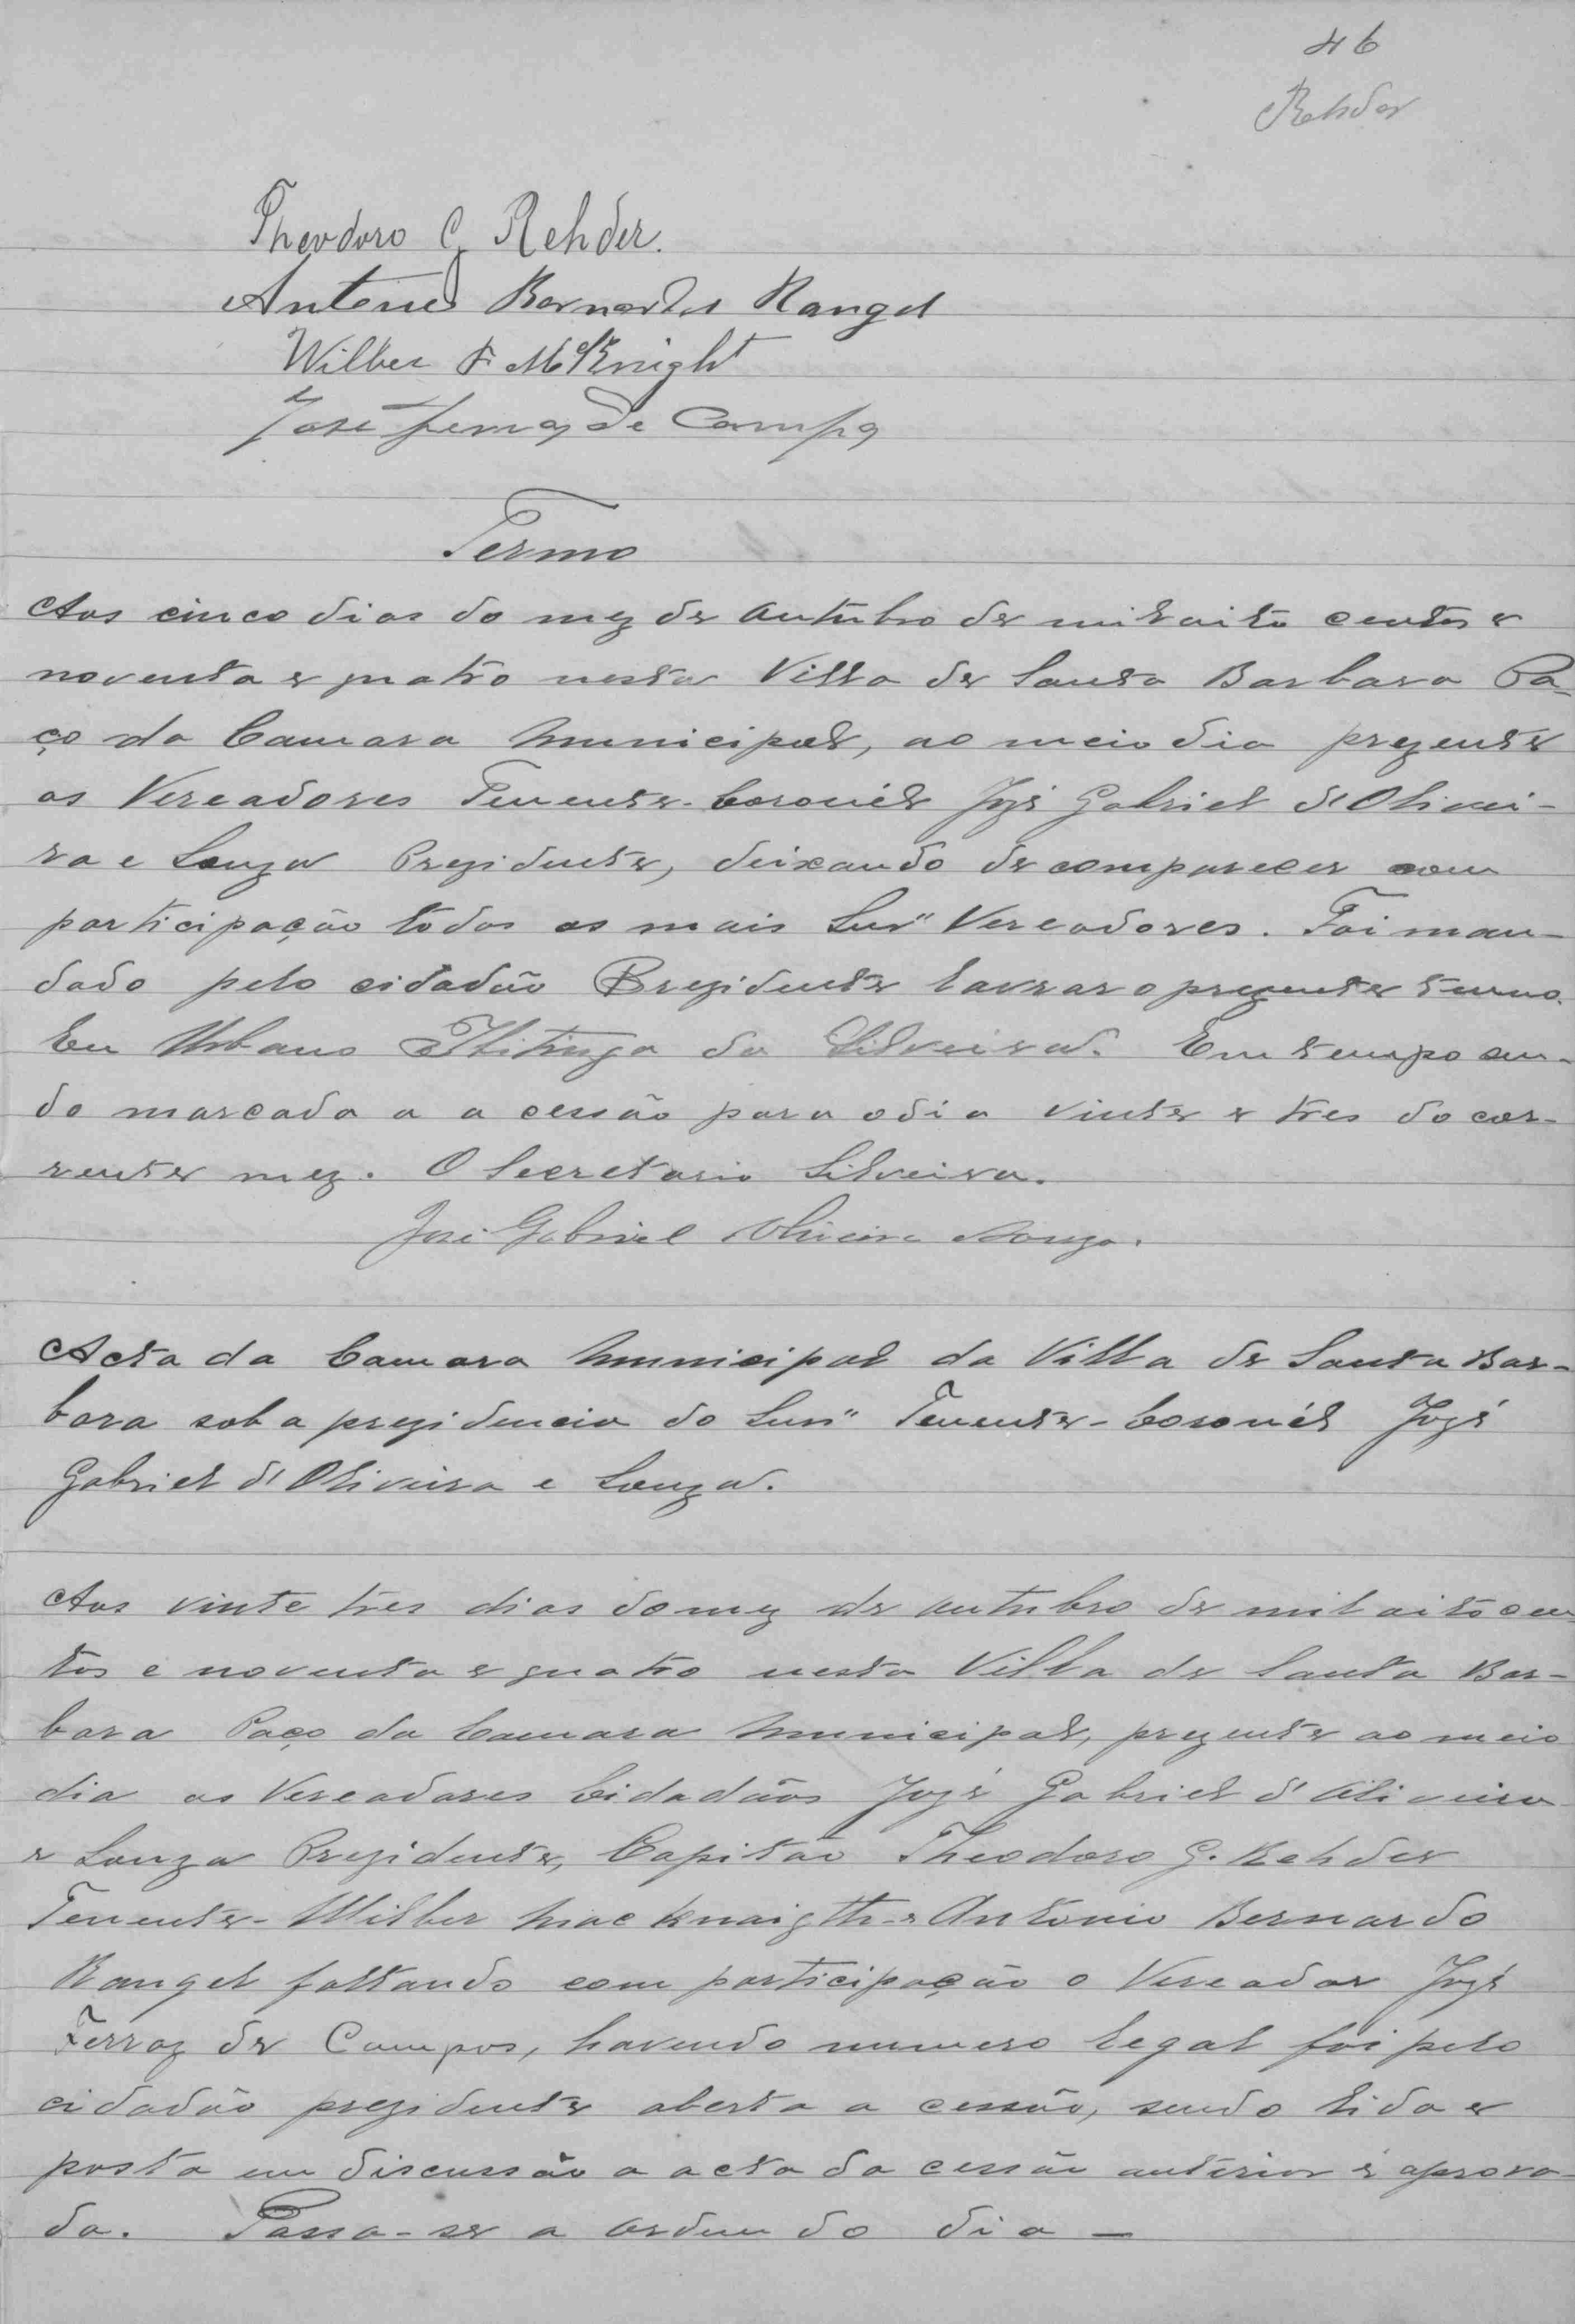 46
Rehder
Theodoro G Rehder.
Antonio Bernardo Rangel
Wilber F McKnight
José Ferraz de Campos
Termo
Aos cinco dias do mez de outubro de mil oito centos e
noventa e quatro nesta Villa de Santa Barbara Pa-
ço da Camara Municipal, ao meio dia prezente
os Vereadores Tenente-Coronél Jozé Gabriel d'Olivei-
ra e Souza Prezidente, deixando de comparecer com
participação todos os mais Snr" Vereadores. Foi man-
dado pelo cidadão Prezidente lavrar o prezente termo.
Eu Urbano Ibitinga da Silveira. Em tempo sen-
do marcada a a cessão para o dia vinte e tres do cor-
rente mez. O Secretario Silveira.
José Gabriel Oliveira Souza.
Acta da Camara Municipal da Villa de Santa Bar-
bara sob a prezidencia do Snr" Tenente-Coronél Jozé
Gabriel d'Oliveira e Souza.
Aos vinte tres dias do mez de outubro de mil oito cen-
tos e noventa e quatro nesta Villa de Santa Bar-
bara Paço da Camara Municipal, prezente ao meio
dia os Vereadores Cidadãos Jozé Gabriel d'Oliveira
e Souza Prezidente, Capitão Theodoro G. Rehder
Tenente-Wilber Mac Knaigth e Antonio Bernardo
Rangel faltando com participação o Vereador Jozé
Ferraz de Campos, havendo numero legal foi pelo
cidadão prezidente aberta a cessão, sendo lida e
posta em discussão a acta da cessão anterior é aprova-
da. Passa-se a ordem do dia —